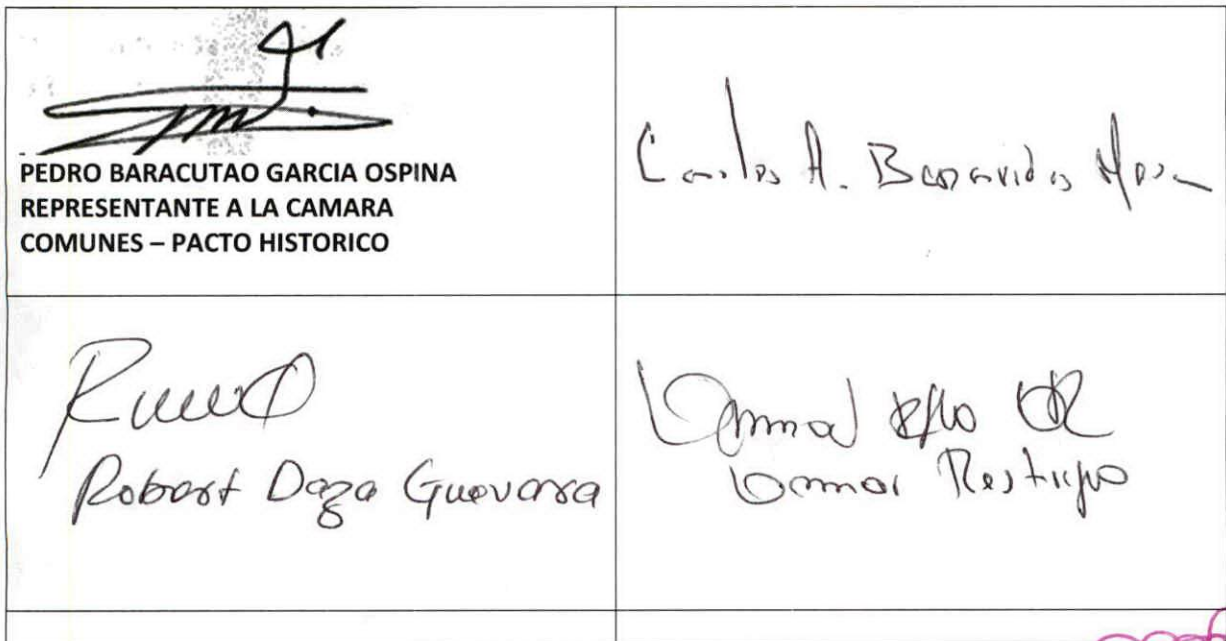 PEDRO BARACUTAO GARCIA OSPINA
REPRESENTANTE A LA CAMARA
COMUNES – PACTO HISTORICO
Carlos A. Benavides Mora
Robert Daza Guevara
Omar Restrepo